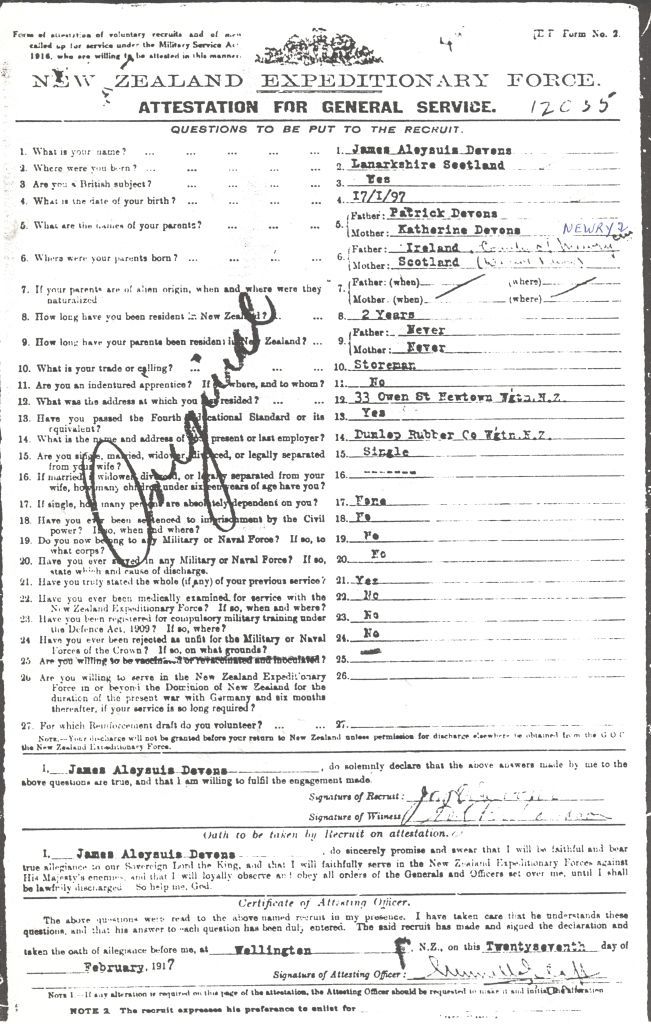 Form of attestation of voluntary recruits and of men
called up for service under the Military Service Act
1916, who are willing to be attested in this manner.
Form No. 2.
NEW ZEALAND EXPEDITIONARY FORCE.
ATTESTATION FOR GENERAL SERVICE.
QUESTIONS TO BE PUT TO THE RECRUIT.
1. What is your name? ... ... ... ... 1. James Aloysuis Devons
2. Where were you born? ... ... ... ... 2. Lanarkshire Scotland
3 Are you a British subject? ... ... ... 3. Yes
4. What is the date of your birth? ... ... ... 4. 17/1/97
5. What are the names of your parents? ... ... ... 5. Father: Patrick Devons
Mother: Katherine Devons NEWRY?
6. Where were your parents born? ... ... ... 6. Father: Ireland
Mother: Scotland
7. If your parents are of alien origin, when and where were they
naturalized
7. Father: (when) (where)
Mother: (when) (where)
8. How long have you been resident in New Zealand? ... ... 8. 2 Years
9. How long have your parents been resident in New Zealand? ... 9. Father: Never
Mother: Never
10. What is your trade or calling? ... ... ... 10. Storeman
11. Are you an indentured apprentice? If so where, and to whom? ... 11. No
12. What was the address at which you last resided? ... ... 12. 33 Owen St Newtown Wgtn.N.Z.
13. Have you passed the Fourth Educational Standard or its
equivalent?
13. Yes
14. What is the name and address of your present or last employer? 14. Dunlop Rubber Co Wgtn.N.Z.
15. Are you single, married, widower, divorced, or legally separated
from your wife?
15. Single
16. If married, widower, divorced, or legally separated from your
wife, how many children under sixteen years of age have you?
16. -------
17. If single, how many persons are absolutely dependent on you? 17. None
18. Have you ever been sentenced to imprisonment by the Civil
power? If so, when and where?
18. No
19. Do you now belong to any Military or Naval Force? If so, to
what corps?
19. No
20. Have you ever served in any Military or Naval Force? If so,
state which and cause of discharge.
20. No
21. Have you truly stated the whole (if any) of your previous service? 21. Yes
22. Have you ever been medically examined for service with the
New Zealand Expeditionary Force? If so, when and where?
22. No
23. Have you been registered for compulsory military training under
the Defence Act, 1909? If so, where?
23. No
24. Have you ever been rejected as unfit for the Military or Naval
Forces of the Crown? If so, on what grounds?
24. No
25 Are you willing to be vaccinated or revaccinated and inoculated? 25. —
26 Are you willing to serve in the New Zealand Expeditionary
Force in or beyond the Dominion of New Zealand for the
duration of the present war with Germany and six months
thereafter, if your service is so long required?
26.
27. For which Reinforcement draft do you volunteer? ... ... 27.
Original
NOTE.—Your discharge will not be granted before your return to New Zealand unless permission for discharge elsewhere be obtained from the G O C
the New Zealand Expeditionary Force.
I, James Aloysuis Devons, do solemnly declare that the above answers made by me to the
above questions are true, and that I am willing to fulfil the engagement made.
Signature of Recruit:
Signature of Witness
Oath to be taken by Recruit on attestation.
I, James Aloysuis Devons, do sincerely promise and swear that I will be faithful and bear
true allegiance to our Sovereign Lord the King, and that I will faithfully serve in the New Zealand Expeditionary Forces against
His Majesty's enemies, and that I will loyally observe and obey all orders of the Generals and Officers set over me, until I shall
be lawfully discharged So help me, God.
Certificate of Attesting Officer.
The above questions were read to the above named recruit in my presence. I have taken care that he understands these
questions, and that his answer to each question has been duly entered. The said recruit has made and signed the declaration and
taken the oath of allegiance before me, at Wellington, N.Z., on this Twentyseventh day of
February, 1917
Signature of Attesting Officer:
NOTE 1—If any alteration is required on this page of the attestation, the Attesting Officer should be requested to make it and initial the alteration
NOTE 2. The recruit expresses his preference to enlist for